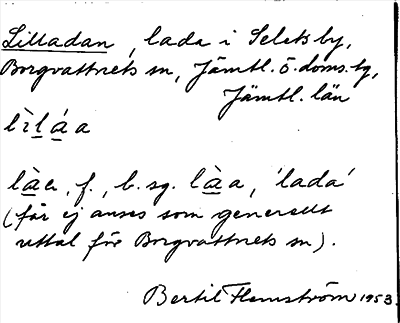 Lilladan, lada i Selets by,
Borgvattnets sn, Jämtl. ö. doms. tg,
Jämtl. län
lìláa
làe, f., b. sg. làa, 'lada'
(får ej anses som generellt
uttal för Borgvattnets sn).
Bertil Flemström 1953.